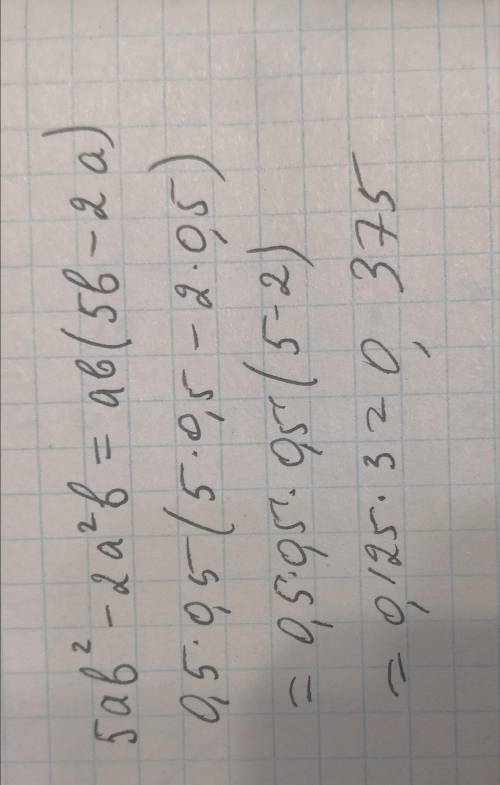 5ab² - 2a²b = ab(5b - 2a)
0,5·0,5(5·0,5 - 2·0,5)
= 0,5·0,5·0,5(5-2)
= 0,125·3 = 0,375